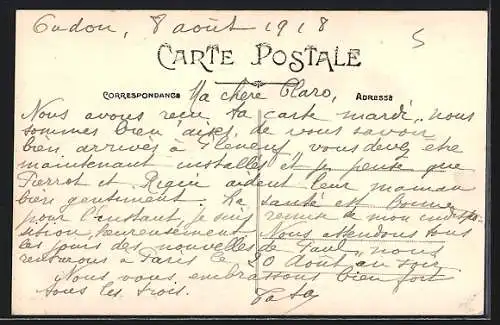 Oudon, 8 août 1918
5
CARTE POSTALE
CORRESPONDANCE Ma chère Claro, ADRESSE
Nous avons reçu ta carte mardi, nous
sommes bien aises de vous savoir
bien arrivés à Pleneuf vous devez être
maintenant installés et je pense que
Pierrot et aident leur maman
bien gentiment. La santé est bonne
pour l'instant, je suis remise de mon indispo-
sition, heureusement. Nous attendons tous
les jours des nouvelles de Paul, nous
rentrons à Paris le 20 Août au soir
Nous vous embrassons bien fort
tous les trois.